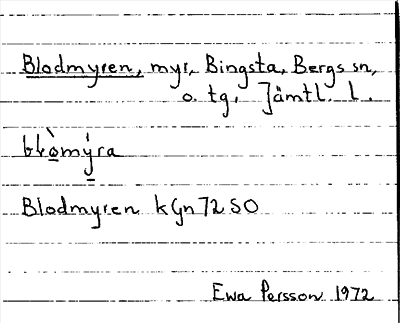 Blodmyren, myr, Bingsta, Bergs sn,
o. tg, Jämtl. l.
Blodmyren kGn 72 SO
Ewa Persson 1972